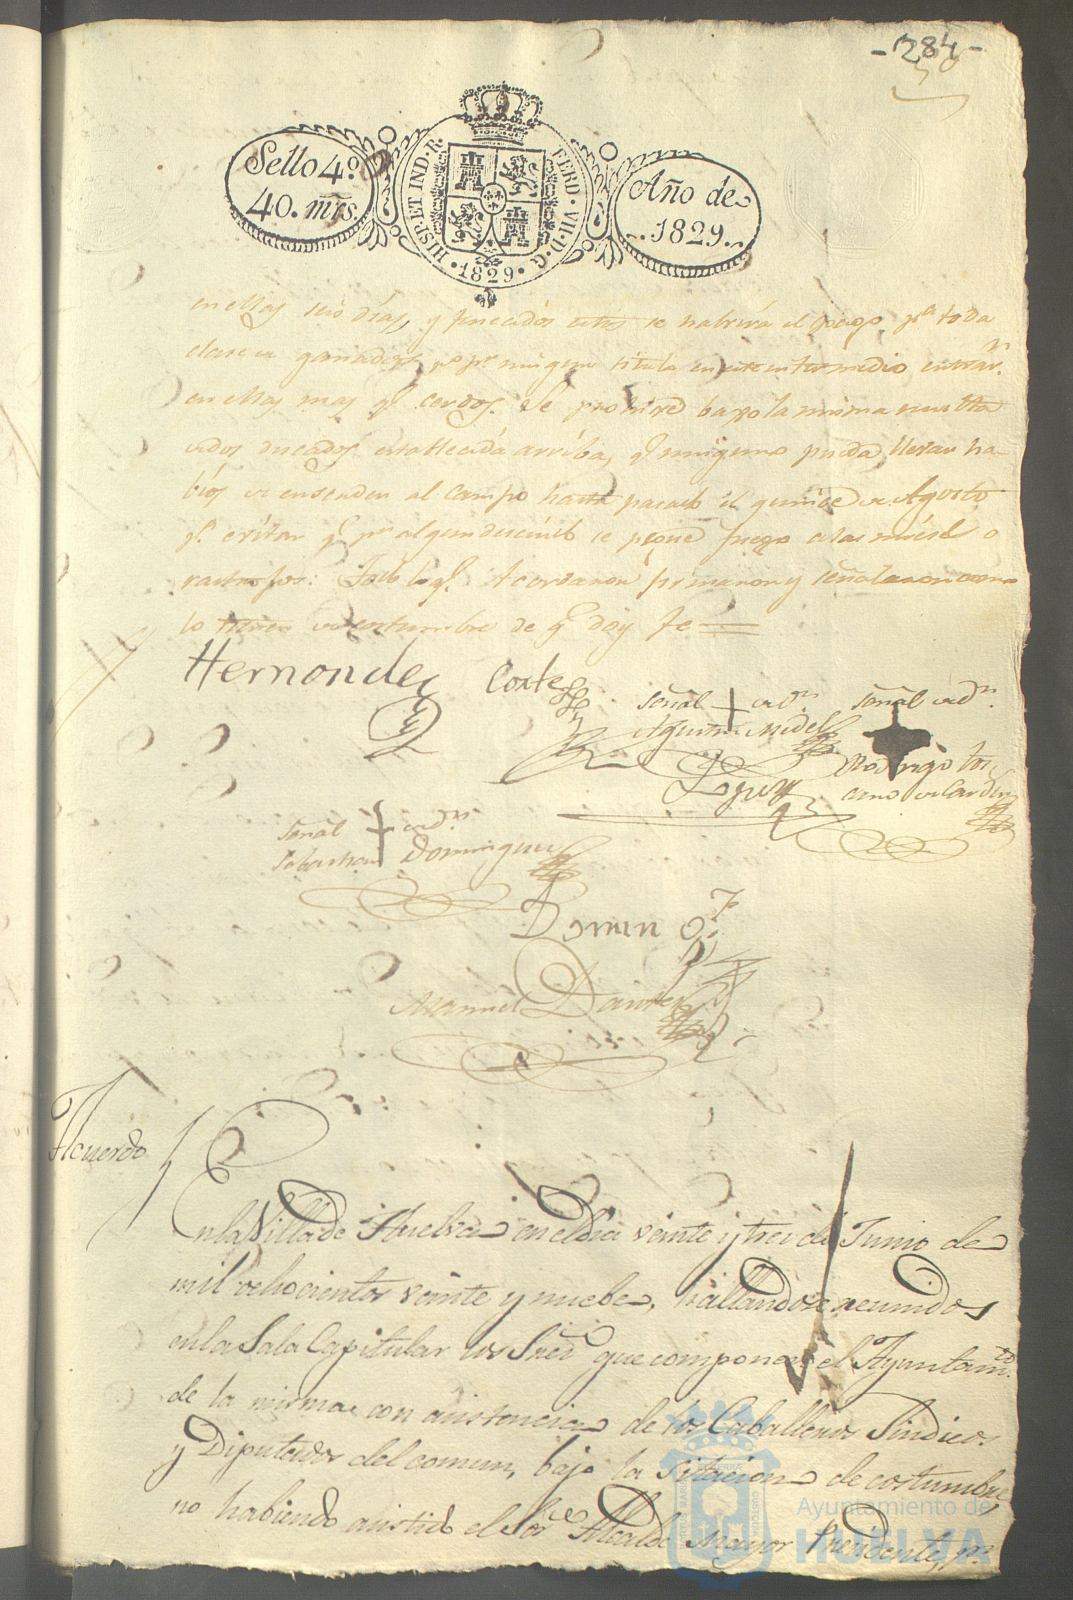 -284-
Sello 4º.
40. mrs.
HISP. ET IND. R.
FERD. VII. D. G.
1829
Año de
1829.
en ellas seis días, y pasados estos se habrirá el pago pª toda
clase de ganados, pº pr ningun titulo en este intermedio entrarn
en ellas mas qe cerdos. Se prohive bajo la misma multa
de dos ducados establecida arriba, qe ninguno pueda llevar ha-
bios de encender al campo hasta pasado el quince de Agosto
pª evitar qe pr algun descuido se pegue fuego a las mieses o
rastrojos: Todo lo qe Acordaron firmaron y señalaron como
lo tienen de costumbre de qe doy fe
Hernondez
Cortes
señal + de dn
Agustin Medel
señal de dn
Rodrigo
señal + de dn
Sebastian Dominguez
Domin
Manuel
Acuerdo
En la Villa de Huelva en el dia veinte y tres de Junio de
mil ochocientos veinte y nuebe, hallandose reunidos
en la Sala Capitular los Sres que componen el Ayuntamto
de la misma con asistencia de los Caballeros Sindicos
y Diputados del comun, bajo la sitacion de costumbre
no habiendo asistido el Sor Alcalde mayor Presidente, pr
Ayuntamiento de
HUELVA